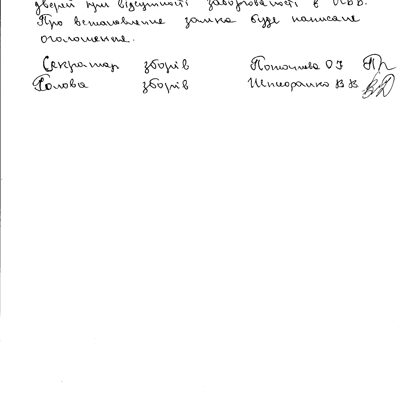 дверей при відсутності заборгованості в ОСББ.
Про встановлення замка буде написане
оголошення.
Секретар зборів
Голова зборів В В